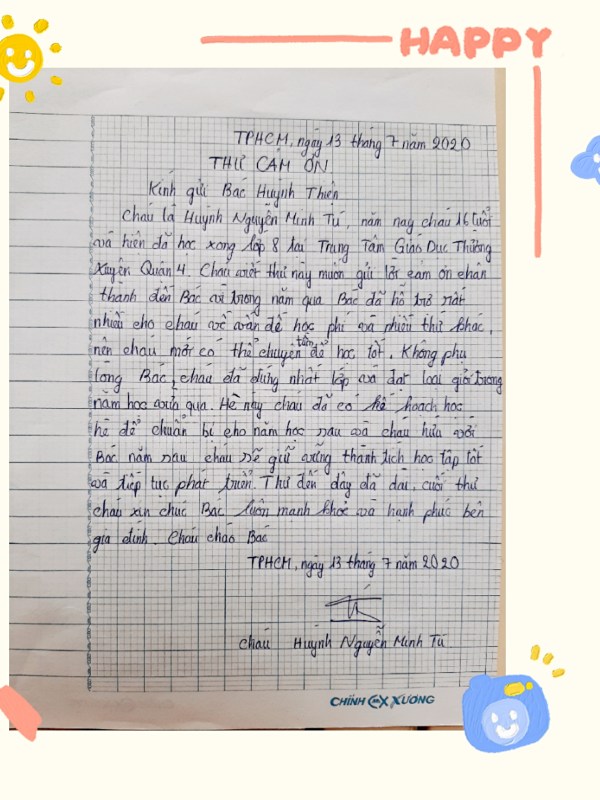 HAPPY
TPHCM, ngày 13 tháng 7 năm 2020
THƯ CẢM ƠN
Kính gửi Bác Huỳnh Thiện
Cháu là Huỳnh Nguyễn Minh Tú, năm nay cháu 16 tuổi
và hiện đã học xong lớp 8 tại Trung Tâm Giáo Dục Thường
Xuyên Quận 4. Cháu viết thư này muốn gửi lời cảm ơn chân
thành đến Bác vì trong năm qua Bác đã hỗ trợ rất
nhiều cho cháu về vấn đề học phí và nhiều thứ khác,
nên cháu mới có thể chuyên tâm để học tốt. Không phụ
lòng Bác, cháu đã đứng nhất lớp và đạt loại giỏi trong
năm học vừa qua. Hè này cháu đã có kế hoạch học
hè để chuẩn bị cho năm học sau và cháu hứa với
Bác năm sau cháu sẽ giữ vững thành tích học tập tốt
và tiếp tục phát triển. Thư đến đây đã dài, cuối thư
cháu xin chúc Bác luôn mạnh khỏe và hạnh phúc bên
gia đình. Cháu chào Bác
TPHCM, ngày 13 tháng 7 năm 2020
Tú
cháu Huỳnh Nguyễn Minh Tú
CHÍNH CX XƯƠNG